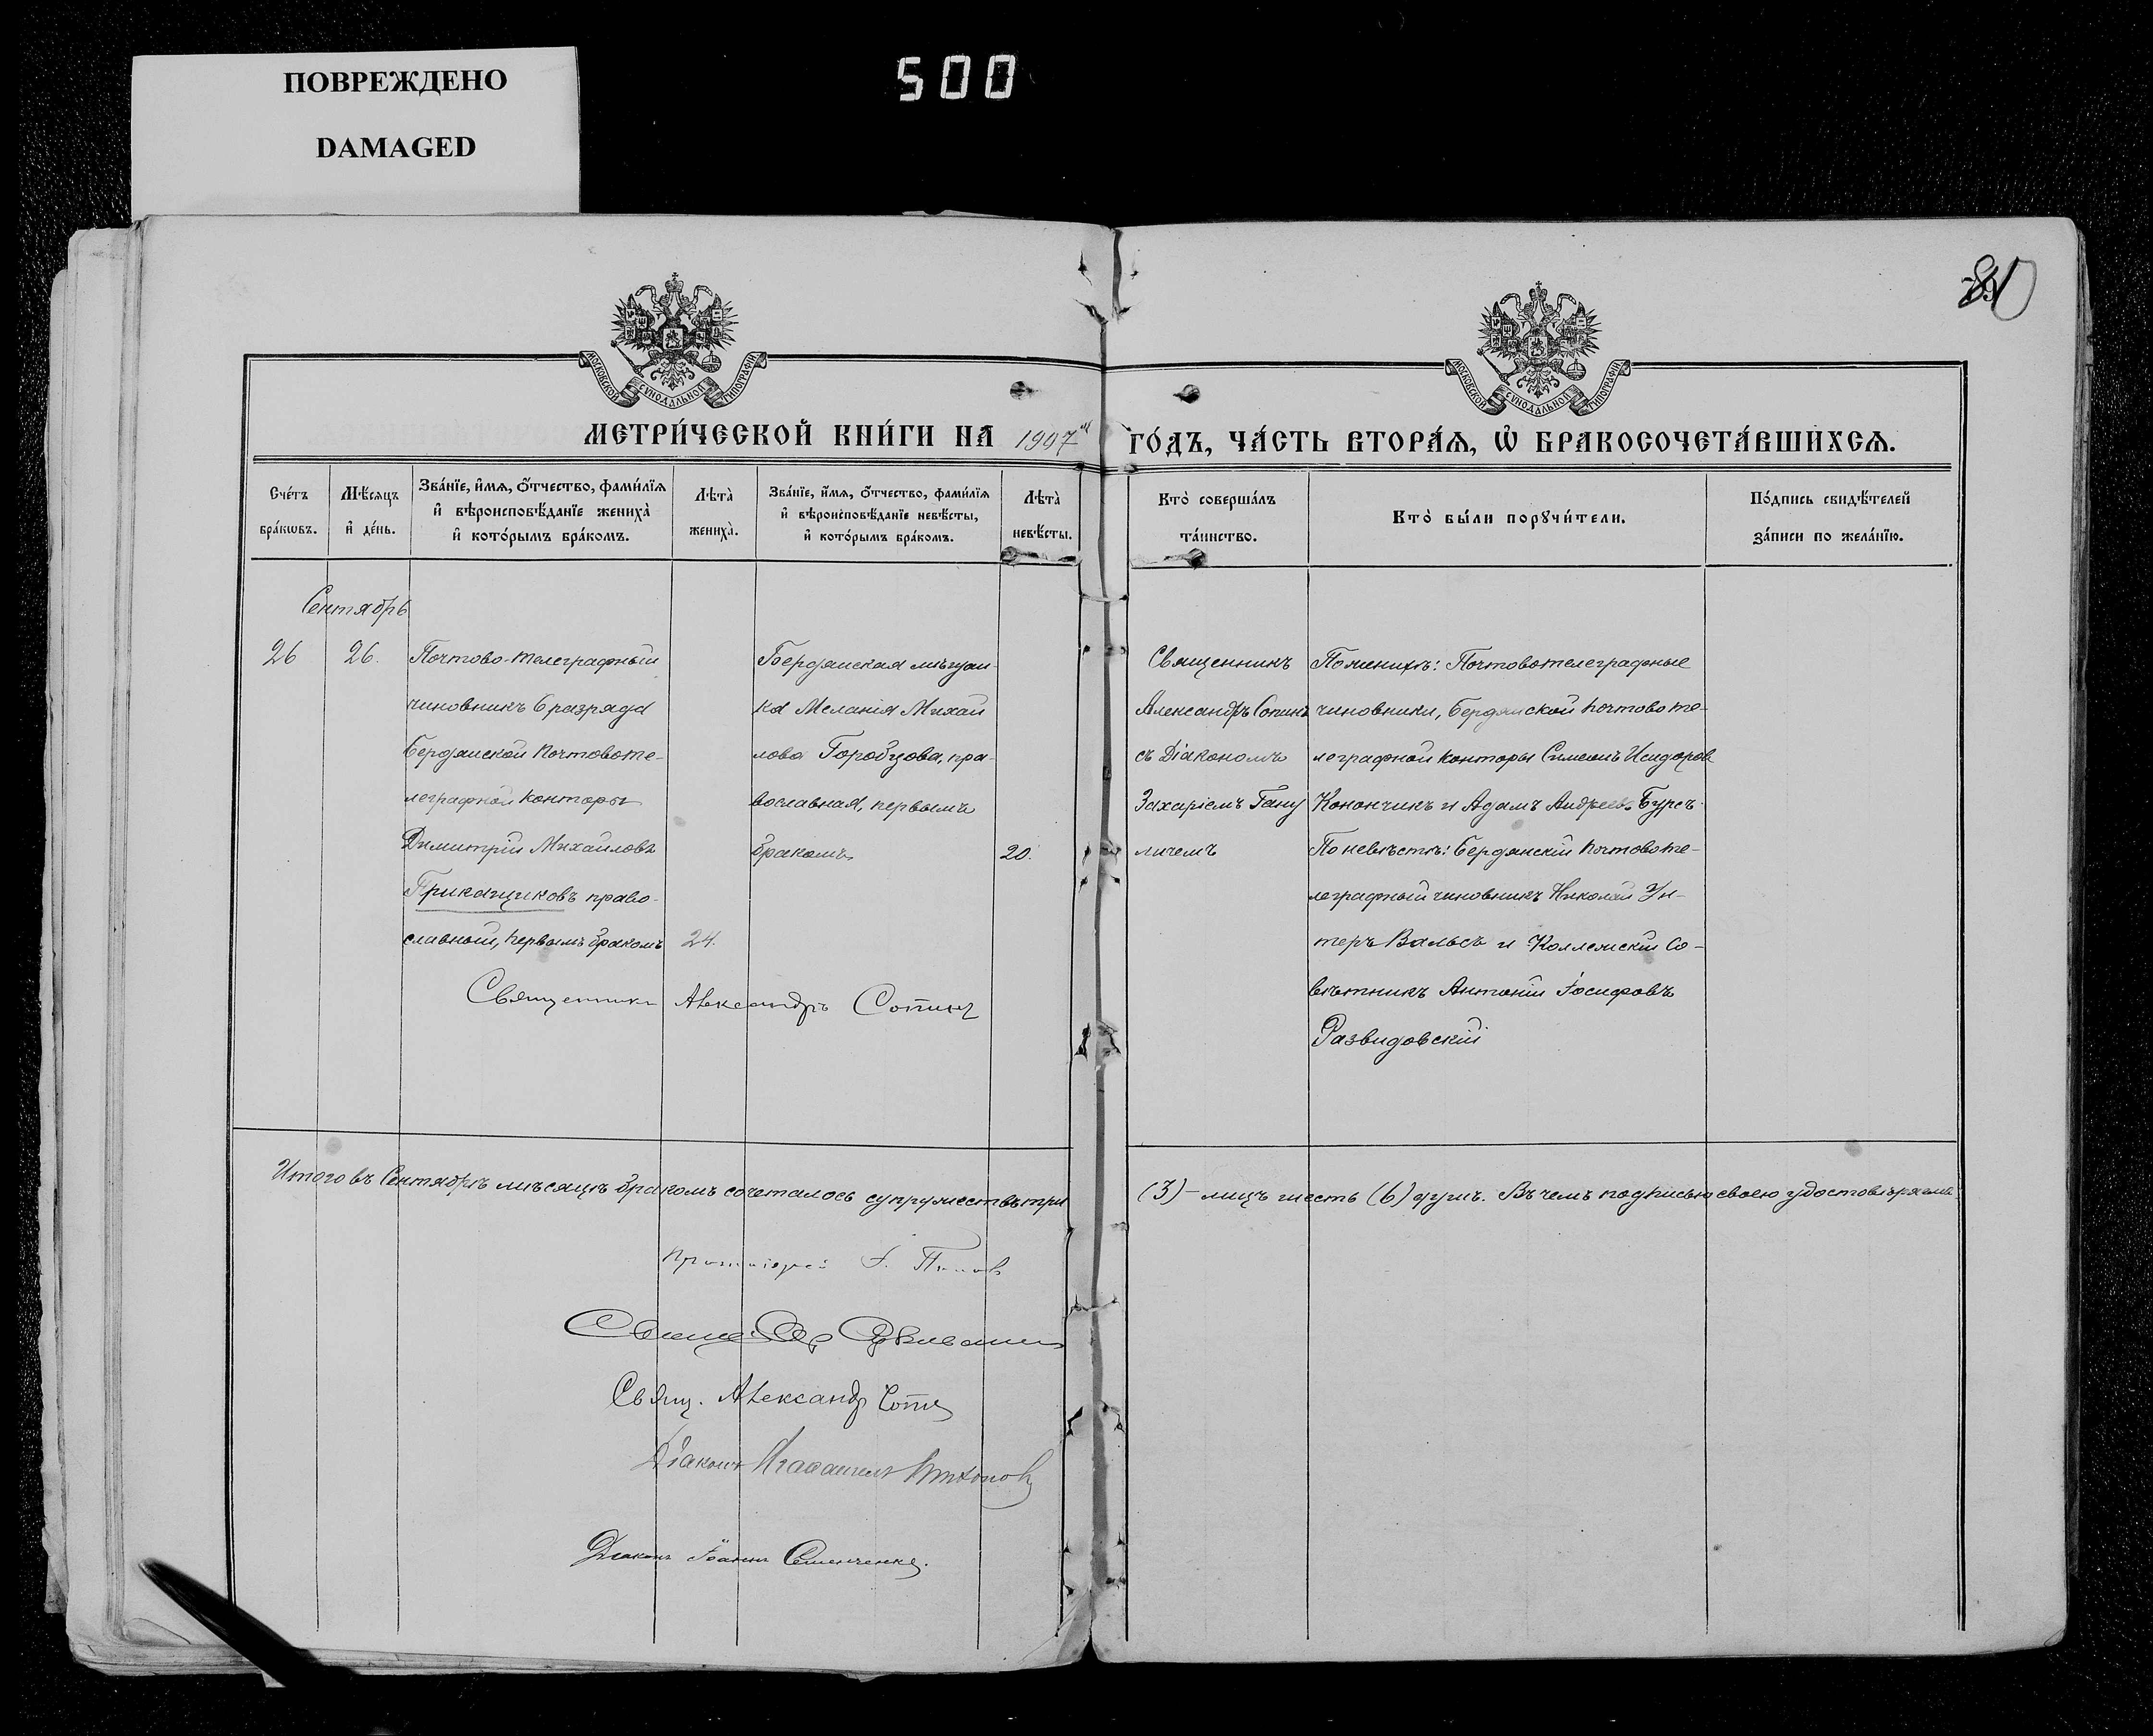 ПОВРЕЖДЕНО
DAMAGED
500
МОСКОВСКОЙ СУНОДАЛЬНОЙ ТИПОГРАФІИ
МОСКОВСКОЙ СУНОДАЛЬНОЙ ТИПОГРАФІИ
МЕТРИ́ЧЕСКОЙ КНИ́ГИ НА 1907й ГО́ДЪ, ЧА́СТЬ ВТОРА́Ѧ, Ѡ҆ БРАКОСОЧЕТА́ВШИХСѦ.
Сче́тъ
бра́кѡвъ.
Мѣ́сѧцъ
и҆ де́нь.
Зва́нїе, и҆́мѧ, ѻ҆́тчество, фами́лїѧ
и҆ вѣроисповѣ́данїе жениха̀
и҆ кото́рымъ бра́комъ.
Лѣта̀
жениха̀.
Зва́нїе, и҆́мѧ, ѻ҆́тчество, фами́лїѧ
и҆ вѣроисповѣ́данїе невѣ́сты,
и҆ кото́рымъ бра́комъ.
Лѣта̀
невѣ́сты.
Кто̀ соверша́лъ
та́инство.
Кто̀ бы́ли порꙋчи́тели.
По́дпись свидѣ́телей
за́писи по жела́нїю.
Сентябрь
26
26.
Почтово-телеграфный
чиновникъ 6 разряда
Бердянской Почтовоте-
леграфной конторы
Димитрій Михаиловъ
Приказщиковъ право-
славный, первымъ бракомъ
24.
Бердянская мѣщан-
ка Меланія Михаи
лова Горобцова, пра-
вославная, первымъ
бракомъ
20.
Священникъ
Александръ Сотинъ
съ Діакономъ
Захаріемъ Гану
личемъ
По женихѣ: Почтовотелеграфные
чиновники, Бердянской почтовоте-
леграфной конторы Симеонъ Исидоровъ
Конончикъ и Адамъ Андреевъ Бурсъ.
По невѣстѣ: Бердянскій почтовоте-
леграфный чиновникъ Николай Эн-
теръ Вальсъ и Коллежскій Со-
вѣтникъ Антоній Іосифовъ
Развидовскій
Священникъ Александръ Сотинъ
Итого въ Сентябрѣ мѣсяцѣ бракомъ сочеталось супружествъ три (3) - лицъ шесть (6) душъ. Въ чемъ подписью своею удостовѣряемъ
Протоіерей І. Попов
Свящ. Александръ Сотин
Діаконъ
Діаконъ Іоаннъ Семенченко.